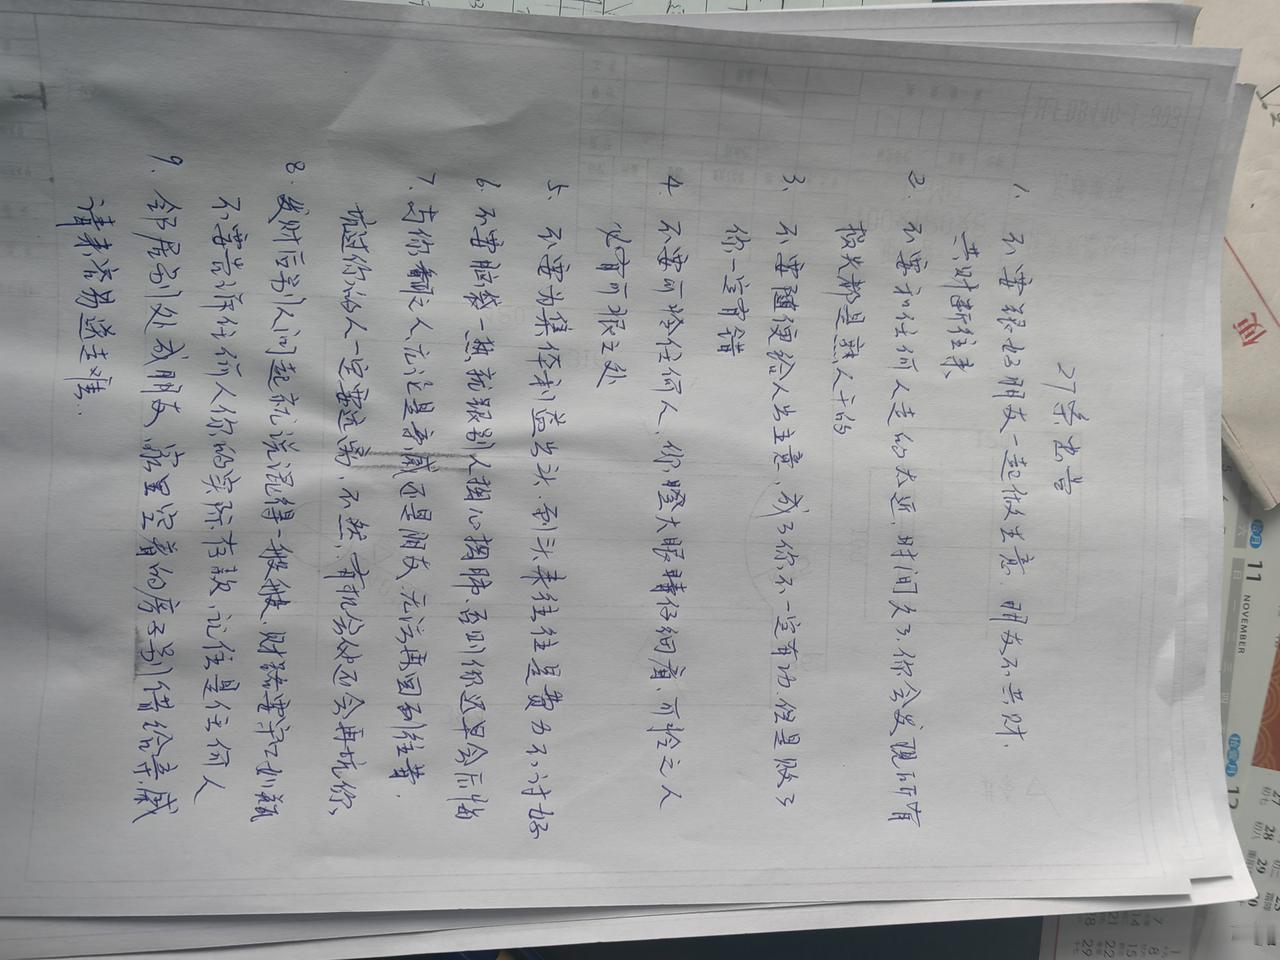 27条忠告
1. 不要跟好朋友一起做生意. 朋友不共财.
共财断往来
2. 不要和任何人走的太近. 时间久了, 你会发现所有
损失都是熟人干的
3. 不要随便给人出主意, 成了你不一定有功. 但是败了
你一定有错
4. 不要可怜任何人, 你瞪大眼睛仔细看, 可怜之人
必有可恨之处
5. 不要为集体利益出头. 到头来往往是费力不讨好
6. 不要脑袋一热就跟别人掏心掏肺. 否则你迟早会后悔
7. 与你翻脸之人无论是亲戚还是朋友, 无法再回到往昔.
坑过你的人一定要远离, 不然, 有机会他还会再坑你,
8. 发财后别人问起就说混得一般般, 财路要守口如瓶
不要告诉任何人你的实际存款, 记住是任何人
9. 邻居别处成朋友, 家里空着的房子别借给亲戚
请来容易送走难.
11
NOVEMBER
12